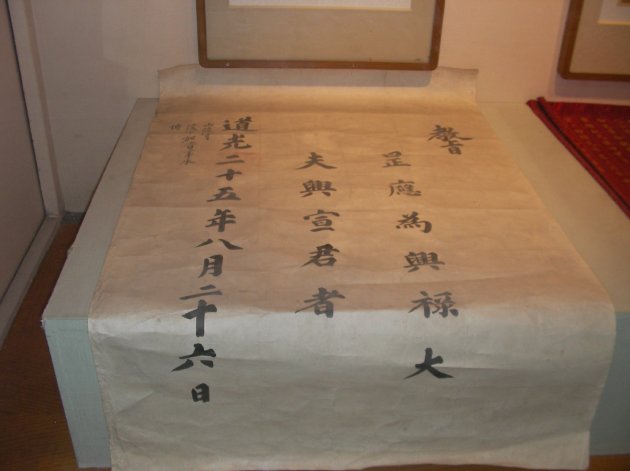 教旨
昰應為興祿大
夫興宣君者
道光二十五年八月二十六日